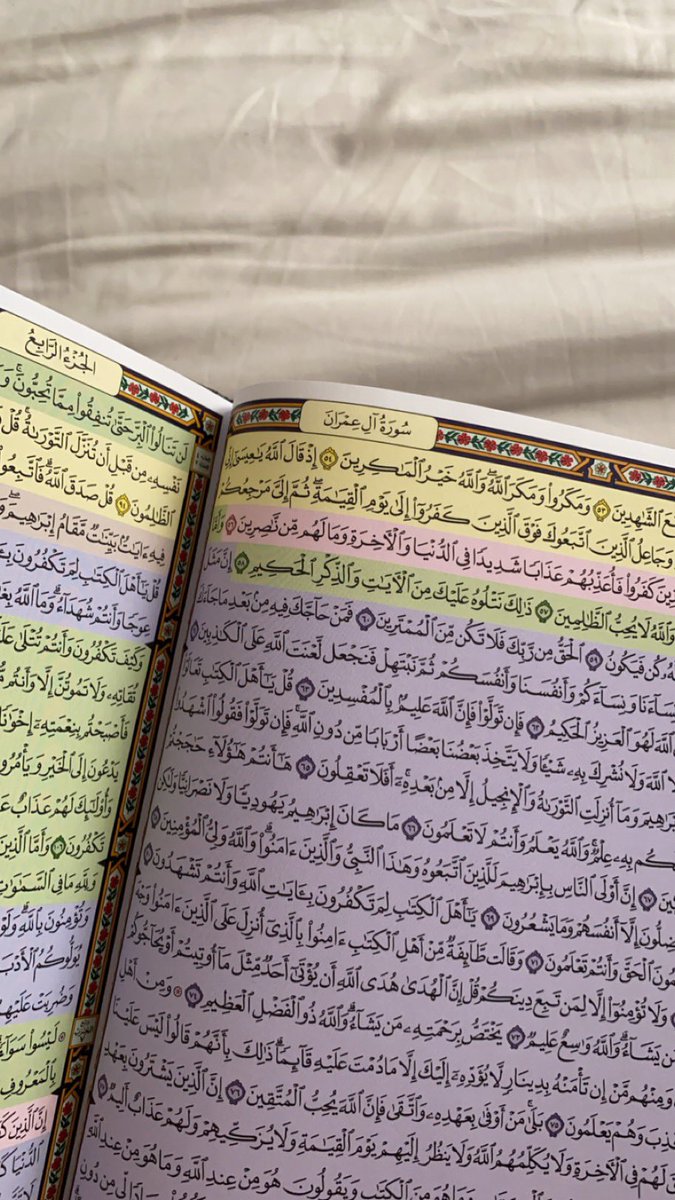 سُورَةُ آلِ عِمْرَانَ
ٱلشَّٰهِدِينَ ٥٣ وَمَكَرُوا۟ وَمَكَرَ ٱللَّهُ وَٱللَّهُ خَيْرُ ٱلْمَٰكِرِينَ ٥٤ إِذْ قَالَ ٱللَّهُ يَٰعِيسَىٰٓ
وَجَاعِلُ ٱلَّذِينَ ٱتَّبَعُوكَ فَوْقَ ٱلَّذِينَ كَفَرُوٓا۟ إِلَىٰ يَوْمِ ٱلْقِيَٰمَةِ ثُمَّ إِلَىَّ مَرْجِعُكُمْ
كَفَرُوا۟ فَأُعَذِّبُهُمْ عَذَابًا شَدِيدًا فِى ٱلدُّنْيَا وَٱلْءَاخِرَةِ وَمَا لَهُم مِّن نَّٰصِرِينَ ٥٦ وَأَمَّا
وَٱللَّهُ لَا يُحِبُّ ٱلظَّٰلِمِينَ ٥٧ ذَٰلِكَ نَتْلُوهُ عَلَيْكَ مِنَ ٱلْءَايَٰتِ وَٱلذِّكْرِ ٱلْحَكِيمِ ٥٨ إِنَّ مَثَلَ
كُن فَيَكُونُ ٥٩ ٱلْحَقُّ مِن رَّبِّكَ فَلَا تَكُن مِّنَ ٱلْمُمْتَرِينَ ٦٠ فَمَنْ حَآجَّكَ فِيهِ مِنۢ بَعْدِ مَا جَآءَكَ
وَنِسَآءَنَا وَنِسَآءَكُمْ وَأَنفُسَنَا وَأَنفُسَكُمْ ثُمَّ نَبْتَهِلْ فَنَجْعَل لَّعْنَتَ ٱللَّهِ عَلَى ٱلْكَٰذِبِينَ ٦١
ٱللَّهَ لَهُوَ ٱلْعَزِيزُ ٱلْحَكِيمُ ٦٢ فَإِن تَوَلَّوْا۟ فَإِنَّ ٱللَّهَ عَلِيمٌۢ بِٱلْمُفْسِدِينَ ٦٣ قُلْ يَٰٓأَهْلَ ٱلْكِتَٰبِ تَعَالَوْا۟
ٱللَّهَ وَلَا نُشْرِكَ بِهِۦ شَيْـًٔا وَلَا يَتَّخِذَ بَعْضُنَا بَعْضًا أَرْبَابًا مِّن دُونِ ٱللَّهِ فَإِن تَوَلَّوْا۟ فَقُولُوا۟ ٱشْهَدُوا۟
إِبْرَٰهِيمَ وَمَآ أُنزِلَتِ ٱلتَّوْرَىٰةُ وَٱلْإِنجِيلُ إِلَّا مِنۢ بَعْدِهِۦٓ أَفَلَا تَعْقِلُونَ ٦٥ هَٰٓأَنتُمْ هَٰٓؤُلَآءِ حَٰجَجْتُمْ
لَكُم بِهِۦ عِلْمٌ وَٱللَّهُ يَعْلَمُ وَأَنتُمْ لَا تَعْلَمُونَ ٦٦ مَا كَانَ إِبْرَٰهِيمُ يَهُودِيًّا وَلَا نَصْرَانِيًّا وَلَٰكِن
٦٧ إِنَّ أَوْلَى ٱلنَّاسِ بِإِبْرَٰهِيمَ لَلَّذِينَ ٱتَّبَعُوهُ وَهَٰذَا ٱلنَّبِىُّ وَٱلَّذِينَ ءَامَنُوا۟ وَٱللَّهُ وَلِىُّ ٱلْمُؤْمِنِينَ ٦٨
يُضِلُّونَ إِلَّآ أَنفُسَهُمْ وَمَا يَشْعُرُونَ ٦٩ يَٰٓأَهْلَ ٱلْكِتَٰبِ لِمَ تَكْفُرُونَ بِـَٔايَٰتِ ٱللَّهِ وَأَنتُمْ تَشْهَدُونَ ٧٠
ٱلْحَقَّ وَأَنتُمْ تَعْلَمُونَ ٧١ وَقَالَت طَّآئِفَةٌ مِّنْ أَهْلِ ٱلْكِتَٰبِ ءَامِنُوا۟ بِٱلَّذِىٓ أُنزِلَ عَلَى ٱلَّذِينَ ءَامَنُوا۟ وَجْهَ
وَلَا تُؤْمِنُوٓا۟ إِلَّا لِمَن تَبِعَ دِينَكُمْ قُلْ إِنَّ ٱلْهُدَىٰ هُدَى ٱللَّهِ أَن يُؤْتَىٰٓ أَحَدٌ مِّثْلَ مَآ أُوتِيتُمْ أَوْ يُحَآجُّوكُمْ
مَن يَشَآءُ وَٱللَّهُ وَٰسِعٌ عَلِيمٌ ٧٣ يَخْتَصُّ بِرَحْمَتِهِۦ مَن يَشَآءُ وَٱللَّهُ ذُو ٱلْفَضْلِ ٱلْعَظِيمِ ٧٤ وَمِنْ أَهْلِ
وَمِنْهُم مَّنْ إِن تَأْمَنْهُ بِدِينَارٍ لَّا يُؤَدِّهِۦٓ إِلَيْكَ إِلَّا مَا دُمْتَ عَلَيْهِ قَآئِمًا ذَٰلِكَ بِأَنَّهُمْ قَالُوا۟ لَيْسَ عَلَيْنَا
ٱلْكَذِبَ وَهُمْ يَعْلَمُونَ ٧٥ بَلَىٰ مَنْ أَوْفَىٰ بِعَهْدِهِۦ وَٱتَّقَىٰ فَإِنَّ ٱللَّهَ يُحِبُّ ٱلْمُتَّقِينَ ٧٦ إِنَّ ٱلَّذِينَ يَشْتَرُونَ بِعَهْدِ
لَهُمْ فِى ٱلْءَاخِرَةِ وَلَا يُكَلِّمُهُمُ ٱللَّهُ وَلَا يَنظُرُ إِلَيْهِمْ يَوْمَ ٱلْقِيَٰمَةِ وَلَا يُزَكِّيهِمْ وَلَهُمْ عَذَابٌ أَلِيمٌ ٧٧
مِنَ ٱلْكِتَٰبِ وَيَقُولُونَ هُوَ مِنْ عِندِ ٱللَّهِ وَمَا هُوَ مِنْ عِندِ ٱللَّهِ
الجُزْءُ الرَّابِعُ
لَن تَنَالُوا۟ ٱلْبِرَّ حَتَّىٰ تُنفِقُوا۟ مِمَّا تُحِبُّونَ
نَفْسِهِۦ مِن قَبْلِ أَن تُنَزَّلَ ٱلتَّوْرَىٰةُ قُلْ
ٱلظَّٰلِمُونَ ٩٤ قُلْ صَدَقَ ٱللَّهُ فَٱتَّبِعُوا۟
فِيهِ ءَايَٰتٌۢ بَيِّنَٰتٌ مَّقَامُ إِبْرَٰهِيمَ
قُلْ يَٰٓأَهْلَ ٱلْكِتَٰبِ لِمَ تَكْفُرُونَ
عِوَجًا وَأَنتُمْ شُهَدَآءُ وَمَا ٱللَّهُ
وَكَيْفَ تَكْفُرُونَ وَأَنتُمْ تُتْلَىٰ
تُقَاتِهِۦ وَلَا تَمُوتُنَّ إِلَّا وَأَنتُم
فَأَصْبَحْتُم بِنِعْمَتِهِۦٓ إِخْوَٰنًا
يَدْعُونَ إِلَى ٱلْخَيْرِ وَيَأْمُرُونَ
وَأُو۟لَٰٓئِكَ لَهُمْ عَذَابٌ
تَكْفُرُونَ ١٠٦ وَأَمَّا ٱلَّذِينَ
وَلِلَّهِ مَا فِى ٱلسَّمَٰوَٰتِ
وَتُؤْمِنُونَ بِٱللَّهِ وَلَوْ
يُوَلُّوكُمُ ٱلْأَدْبَارَ
وَضُرِبَتْ عَلَيْهِمُ
لَيْسُوا۟ سَوَآءً
بِٱلْمَعْرُوفِ
إِنَّ ٱلَّذِينَ
ٱلدُّنْيَا